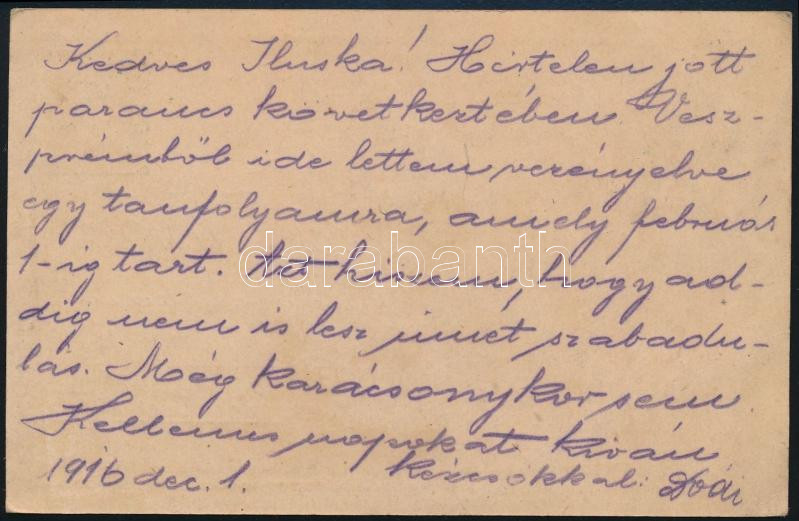 Kedves Iluska! Hirtelen jött
parancs következtében Vesz-
prémből ide lettem vezényelve
egy tanfolyamra, amely február
1-ig tart. Azt hiszem, hogy ad-
dig nem is lesz innét szabadu-
lás. Még karácsonykor sem.
Kellemes napokat kíván
1916 dec. 1. kézcsókkal:
darabanth